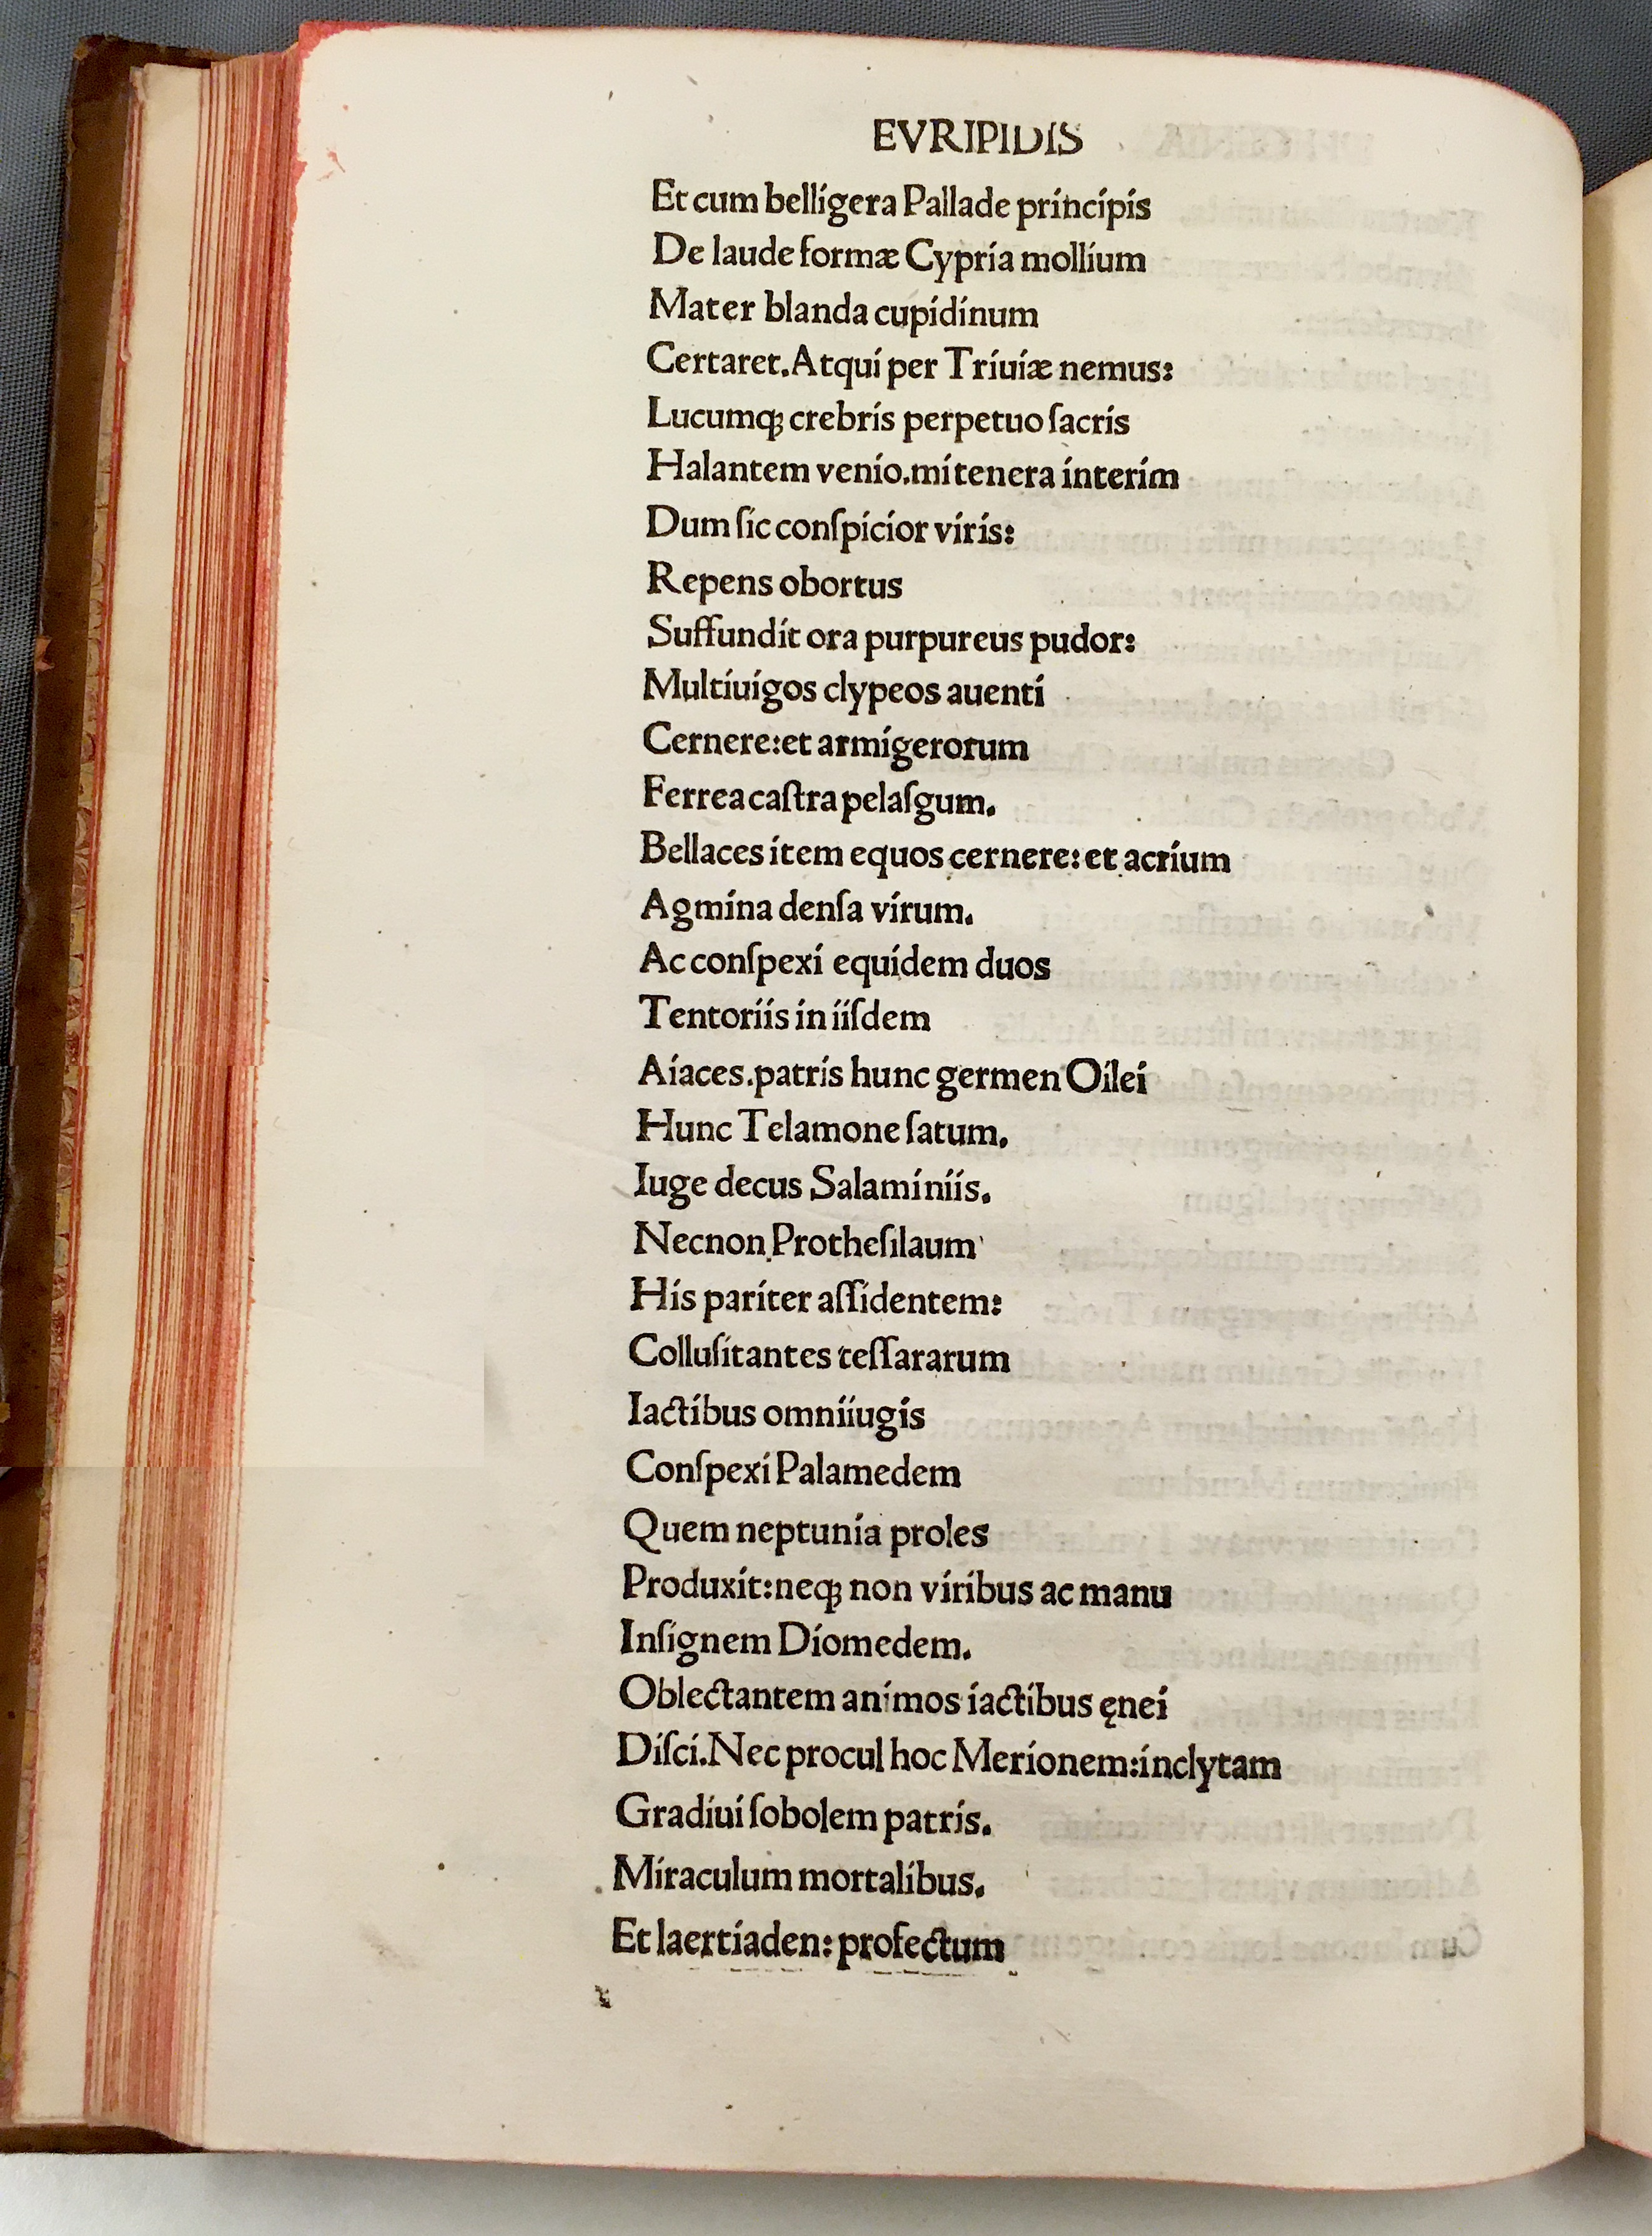 EVRIPIDIS
Et cum belligera Pallade principis
De laude formæ Cypria mollium
Mater blanda cupidinum
Certaret. Atqui per Triuiæ nemus:
Lucumqꝫ crebris perpetuo ſacris
Halantem venio. mi tenera interim
Dum ſic conſpicior viris:
Repens obortus
Suffundit ora purpureus pudor:
Multiuigos clypeos auenti
Cernere: et armigerorum
Ferrea caſtra pelaſgum.
Bellaces item equos cernere: et acrium
Agmina denſa virum.
Ac conſpexi equidem duos
Tentoriis in iiſdem
Aiaces. patris hunc germen Oilei
Hunc Telamone ſatum.
Iuge decus Salaminiis.
Necnon Protheſilaum
His pariter aſſidentem:
Colluſitantes teſſararum
Iactibus omniiugis
Conſpexi Palamedem
Quem neptunia proles
Produxit: neqꝫ non viribus ac manu
Inſignem Diomedem.
Oblectantem animos iactibus ęnei
Diſci. Nec procul hoc Merionem: inclytam
Gradiui ſobolem patris.
Miraculum mortalibus.
Et laertiaden: profectum